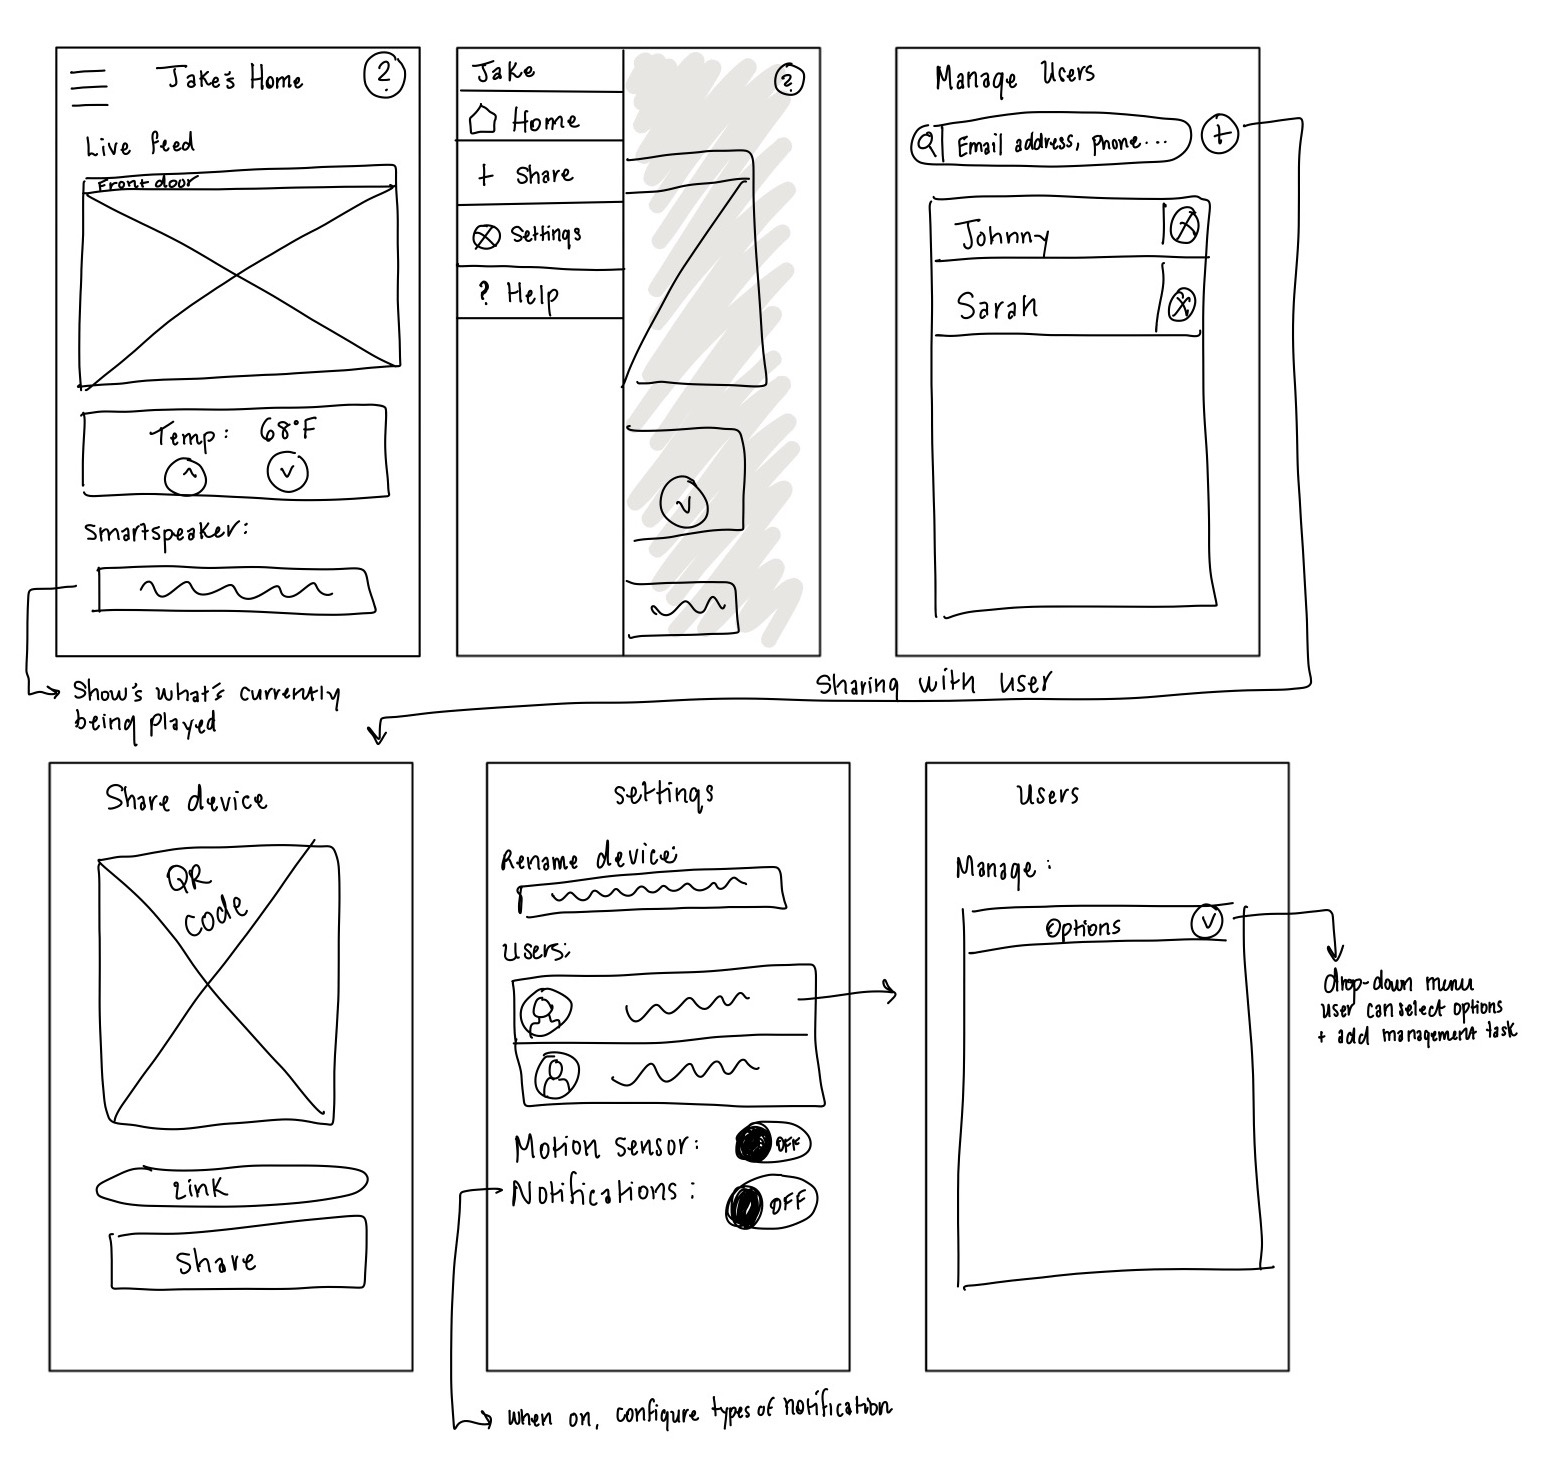 Jake's Home
?
Live feed
Front door
Temp: 68°F
Smartspeaker:
Show's what's currently
being played
Jake
?
Home
+ Share
Settings
? Help
Manage Users
Email address, Phone...
+
Johnny
X
Sarah
X
Sharing with user
Share device
QR
code
Link
Share
settings
Rename device:
Users:
Motion sensor: OFF
Notifications: OFF
When on, configure types of notification
Users
Manage:
Options
drop-down menu
user can select options
+ add management task